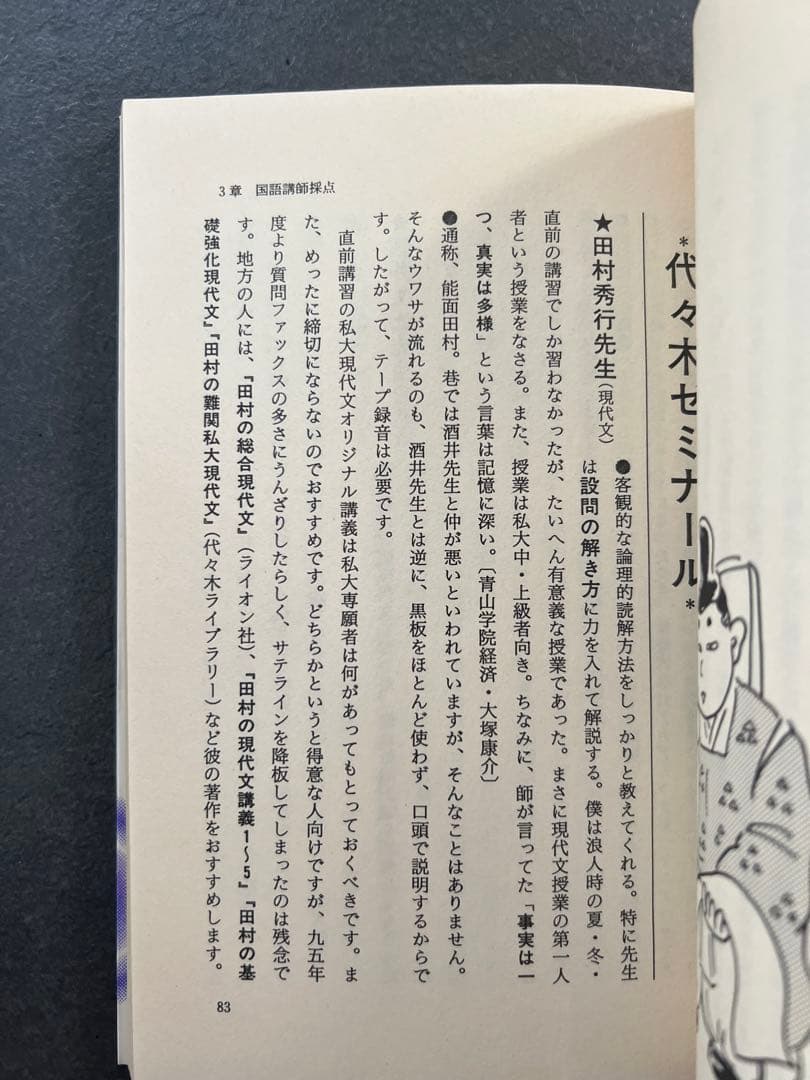 3章　国語講師採点
＊代々木ゼミナール＊
★田村秀行先生（現代文）
●客観的な論理的読解方法をしっかりと教えてくれる。特に先生
は設問の解き方に力を入れて解説する。僕は浪人時の夏・冬・
直前の講習でしか習わなかったが、たいへん有意義な授業であった。まさに現代文授業の第一人
者という授業をなさる。また、授業は私大中・上級者向き。ちなみに、師が言ってた「事実は一
つ、真実は多様」という言葉は記憶に深い。〔青山学院経済・大塚康介〕
●通称、能面田村。巷では酒井先生と仲が悪いといわれていますが、そんなことはありません。
そんなウワサが流れるのも、酒井先生とは逆に、黒板をほとんど使わず、口頭で説明するからで
す。したがって、テープ録音は必要です。
直前講習の私大現代文オリジナル講義は私大専願者は何があってもとっておくべきです。ま
た、めったに締切にならないのでおすすめです。どちらかというと得意な人向けですが、九五年
度より質問ファックスの多さにうんざりしたらしく、サテラインを降板してしまったのは残念で
す。地方の人には、『田村の総合現代文』（ライオン社）、『田村の現代文講義1〜5』『田村の基
礎強化現代文』『田村の難関私大現代文』（代々木ライブラリー）など彼の著作をおすすめします。
83